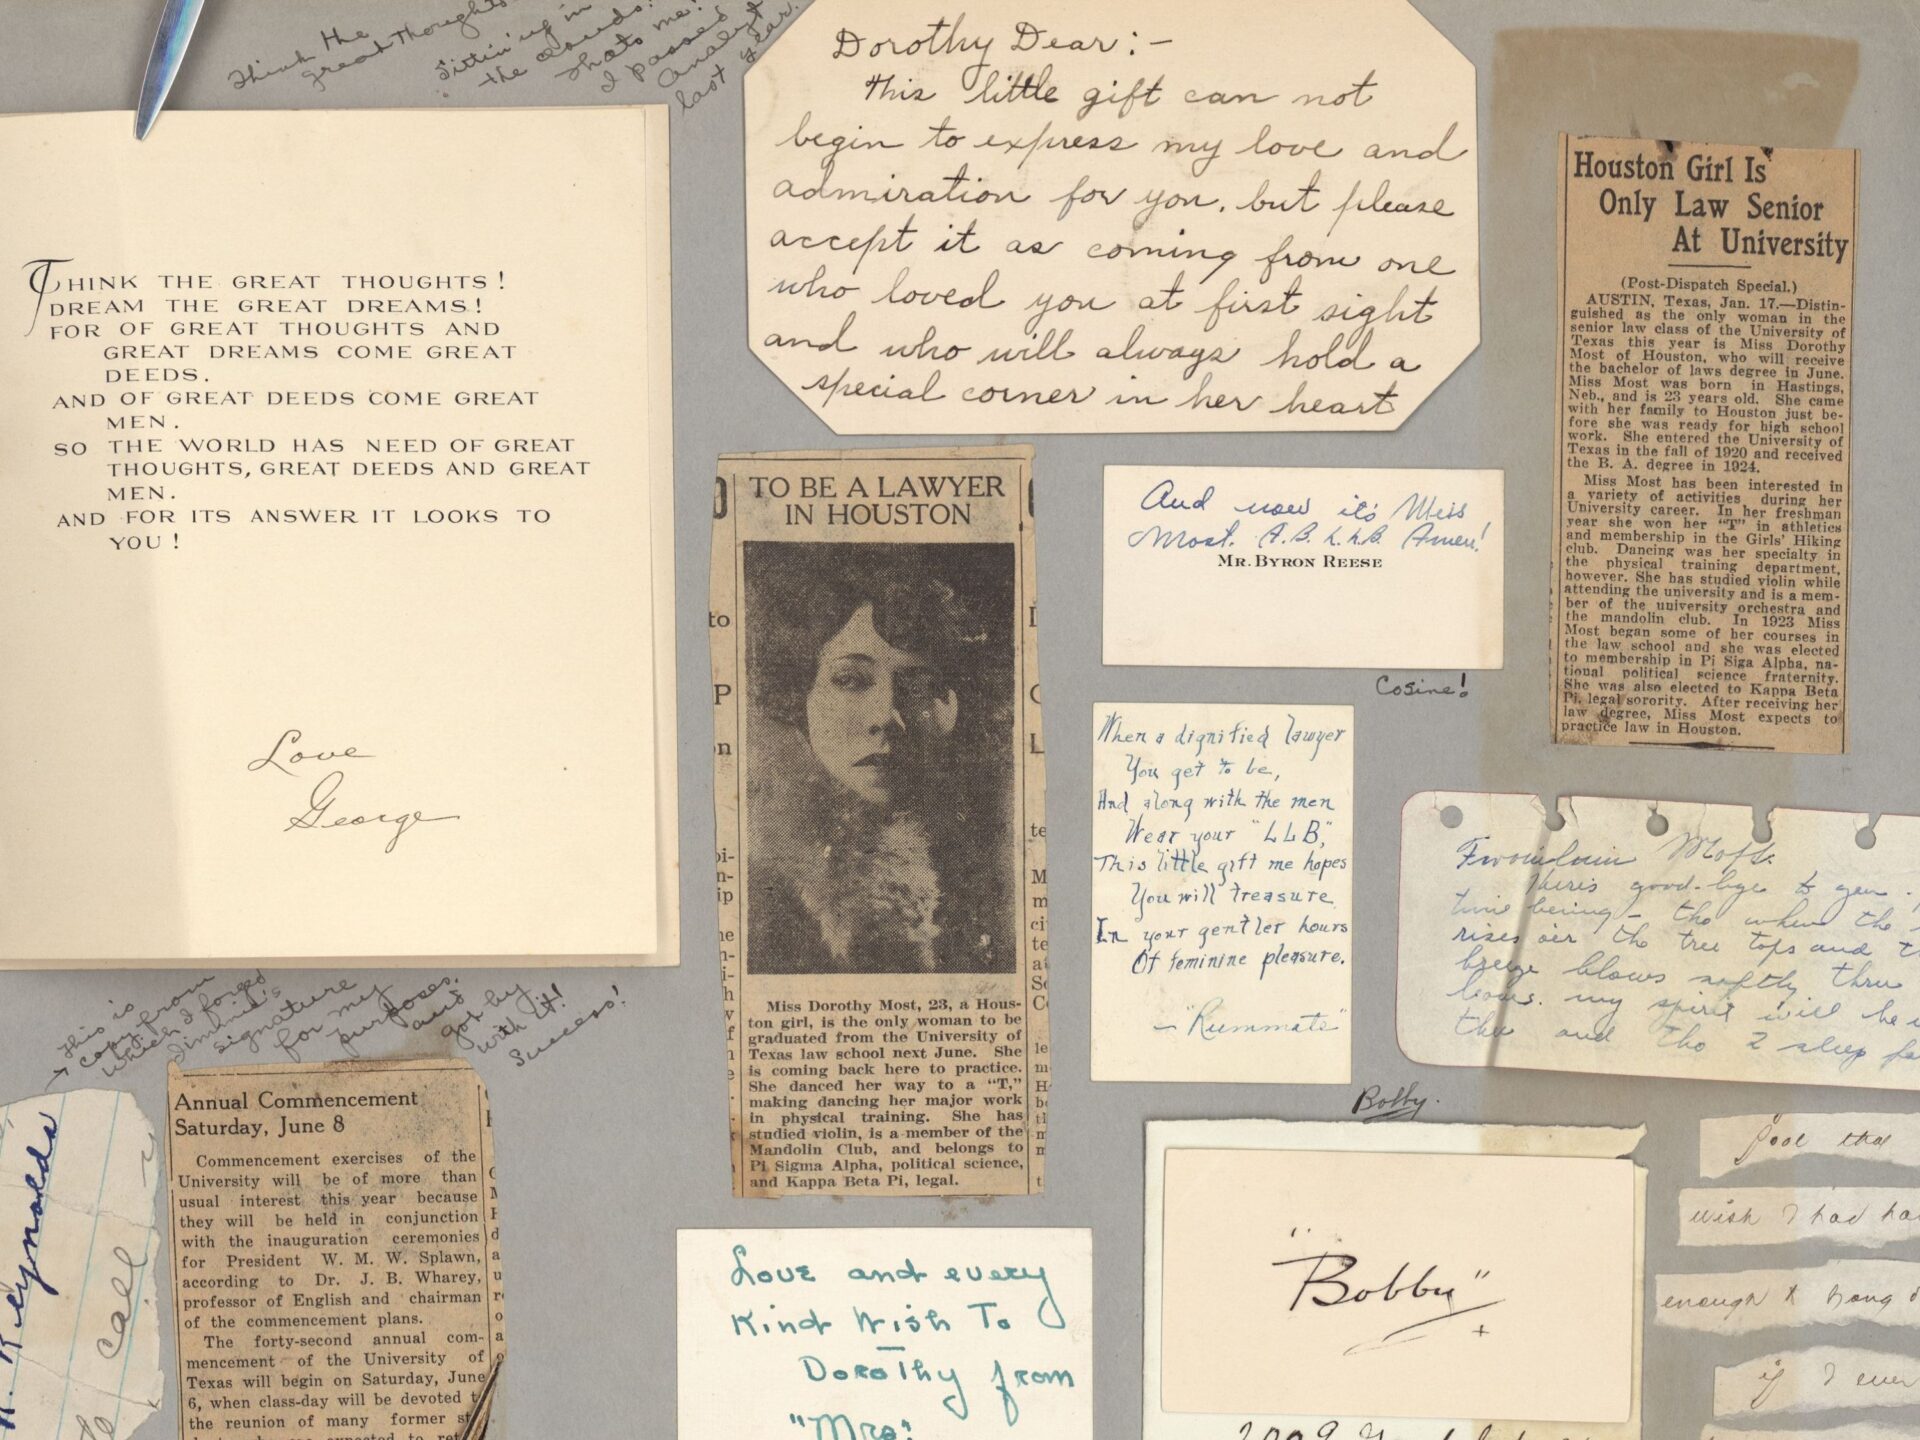 Think the
great thoughts
Sittin' up in
the clouds!
Thats me!
I passed
Analyt
last year.
THINK THE GREAT THOUGHTS!
DREAM THE GREAT DREAMS!
FOR OF GREAT THOUGHTS AND
GREAT DREAMS COME GREAT
DEEDS.
AND OF GREAT DEEDS COME GREAT
MEN.
SO THE WORLD HAS NEED OF GREAT
THOUGHTS, GREAT DEEDS AND GREAT
MEN.
AND FOR ITS ANSWER IT LOOKS TO
YOU!
Love
George
This is
copy from
which I forged
Jimmie's
signature
for my
purposes.
and
got by
with it!
Success!
Reynolds
call
Annual Commencement
Saturday, June 8
Commencement exercises of the
University will be of more than
usual interest this year because
they will be held in conjunction
with the inauguration ceremonies
for President W. M. W. Splawn,
according to Dr. J. B. Wharey,
professor of English and chairman
of the commencement plans.
The forty-second annual com-
mencement of the University of
Texas will begin on Saturday, June
6, when class-day will be devoted t
the reunion of many former st
Dorothy Dear:-
This little gift can not
begin to express my love and
admiration for you, but please
accept it as coming from one
who loved you at first sight
and who will always hold a
special corner in her heart
TO BE A LAWYER
IN HOUSTON
Miss Dorothy Most, 23, a Hous-
ton girl, is the only woman to be
graduated from the University of
Texas law school next June. She
is coming back here to practice.
She danced her way to a "T,"
making dancing her major work
in physical training. She has
studied violin, is a member of the
Mandolin Club, and belongs to
Pi Sigma Alpha, political science,
and Kappa Beta Pi, legal.
And now it's Miss
Most. A.B. L.L.B. Amen!
MR. BYRON REESE
Cosine!
When a dignified lawyer
You get to be,
And along with the men
Wear your "LLB,"
This little gift me hopes
You will treasure
In your gentler hours
Of feminine pleasure.
-"Rummate"
Love and every
Kind Wish To
Dorothy from
"Mrs.
Houston Girl Is
Only Law Senior
At University
(Post-Dispatch Special.)
AUSTIN, Texas, Jan. 17.—Distin-
guished as the only woman in the
senior law class of the University of
Texas this year is Miss Dorothy
Most of Houston, who will receive
the bachelor of laws degree in June.
Miss Most was born in Hastings,
Neb., and is 23 years old. She came
with her family to Houston just be-
fore she was ready for high school
work. She entered the University of
Texas in the fall of 1920 and received
the B. A. degree in 1924.
Miss Most has been interested in
a variety of activities during her
University career. In her freshman
year she won her "T" in athletics
and membership in the Girls' Hiking
club. Dancing was her specialty in
the physical training department,
however. She has studied violin while
attending the university and is a mem-
ber of the university orchestra and
the mandolin club. In 1923 Miss
Most began some of her courses in
the law school and she was elected
to membership in Pi Siga Alpha, na-
tional political science fraternity.
She was also elected to Kappa Beta
Pi, legal sorority. After receiving her
law degree, Miss Most expects to
practice law in Houston.
good-bye to
time being - tho when the
rises o'er the tree tops and
breeze blows softly thru
my spirit will be
and tho I sleep
Bobby.
"Bobby"
fool that
wish I had
enough
if I ever